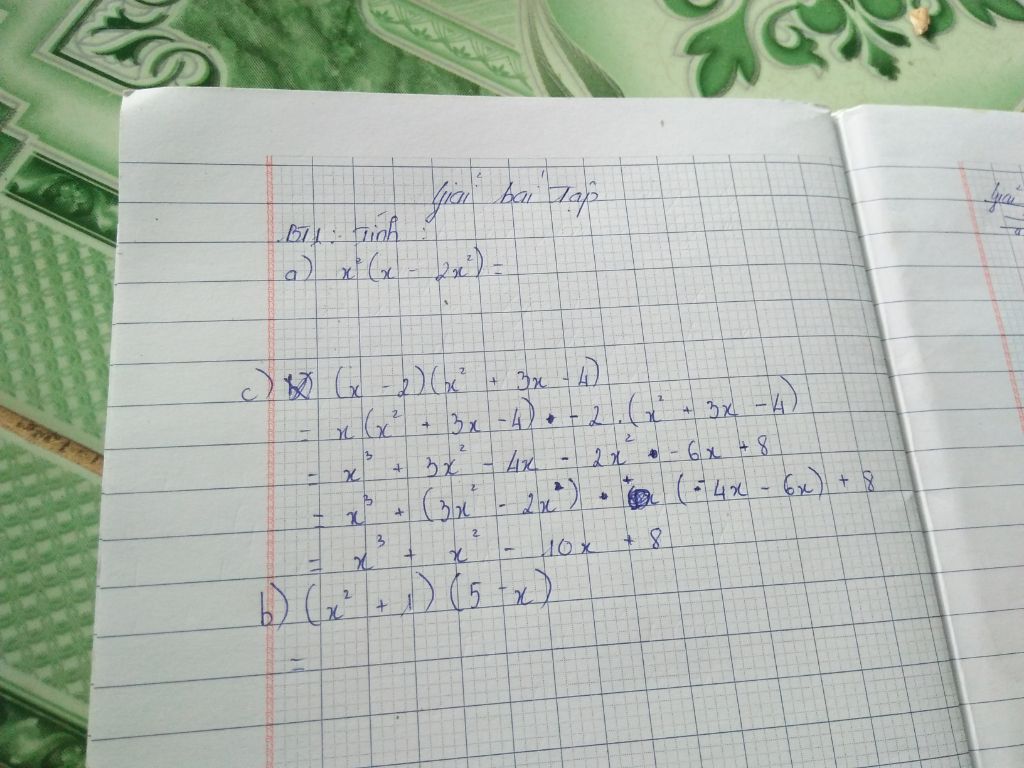 Giải bài Tập
BT1: Tính:
a) x²(x - 2x²) =
c) (x - 2)(x² + 3x - 4)
= x(x² + 3x - 4) - 2.(x² + 3x - 4)
= x³ + 3x² - 4x - 2x² - 6x + 8
= x³ + (3x² - 2x²) + (-4x - 6x) + 8
= x³ + x² - 10x + 8
b) (x² + 1)(5 - x)
=
Giải